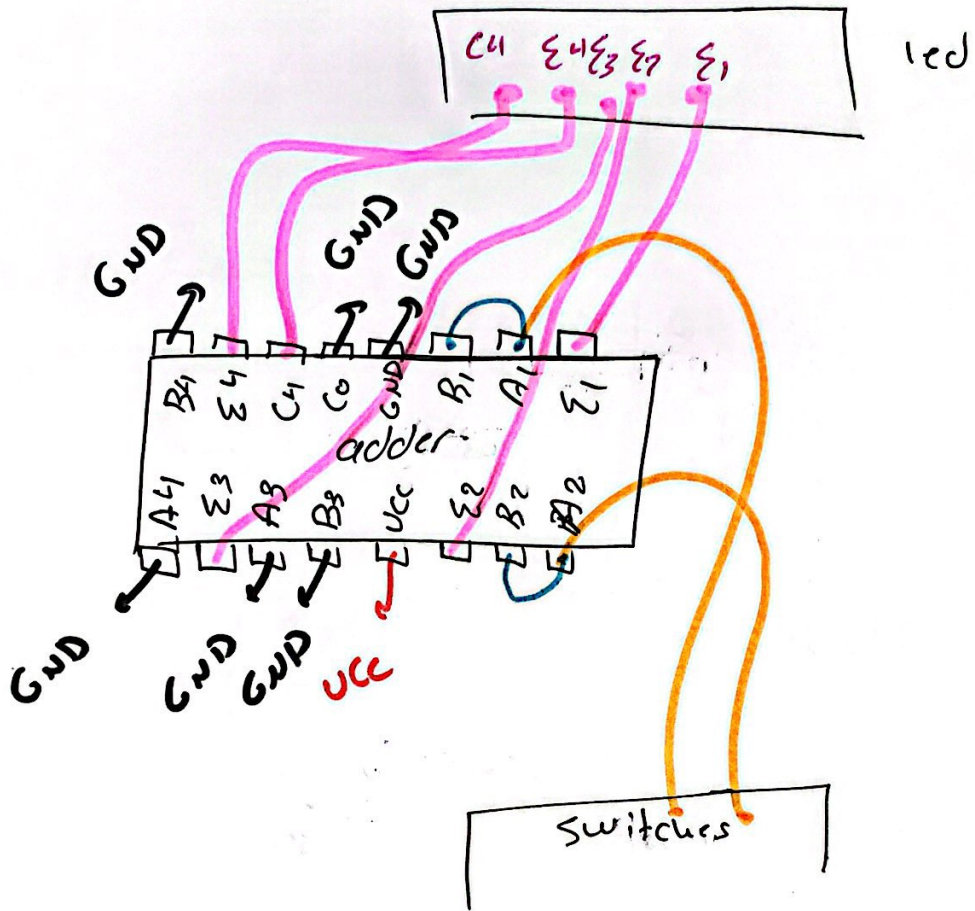 C4 Σ4 Σ3 Σ2 Σ1
led
GND GND GND
B4 Σ4 C4 C0 GND B1 A1 Σ1
adder
A4 Σ3 A3 B3 VCC Σ2 B2 A2
GND GND GND VCC
switches